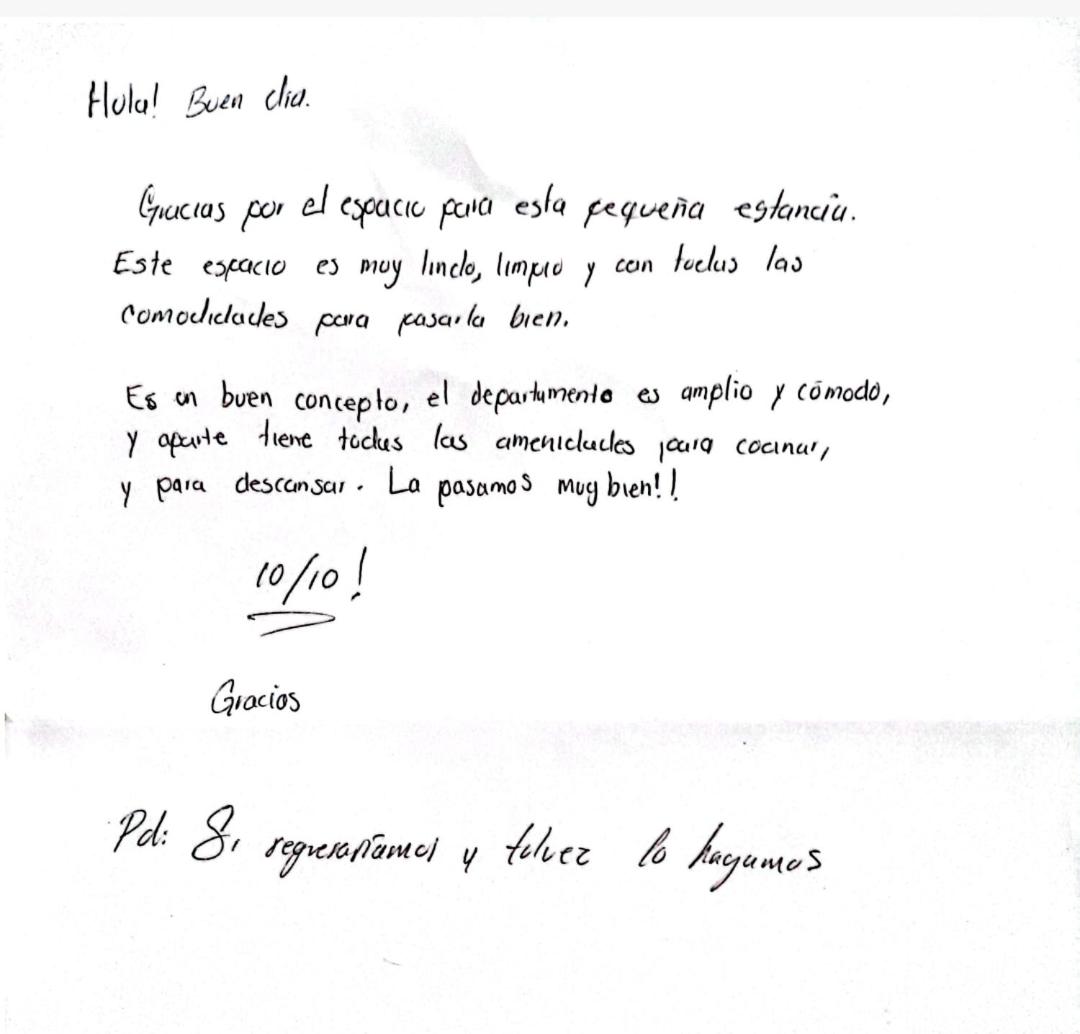 Hola! Buen dia.
Gracias por el espacio para esta pequeña estancia.
Este espacio es muy lindo, limpio y con todas las
comodidades para pasarla bien.
Es un buen concepto, el departamento es amplio y cómodo,
y aparte tiene todas las amenidades para cocinar,
y para descansar. La pasamos muy bien!!
10/10!
Gracias
Pd: Si regresaríamos y talvez lo hagamos